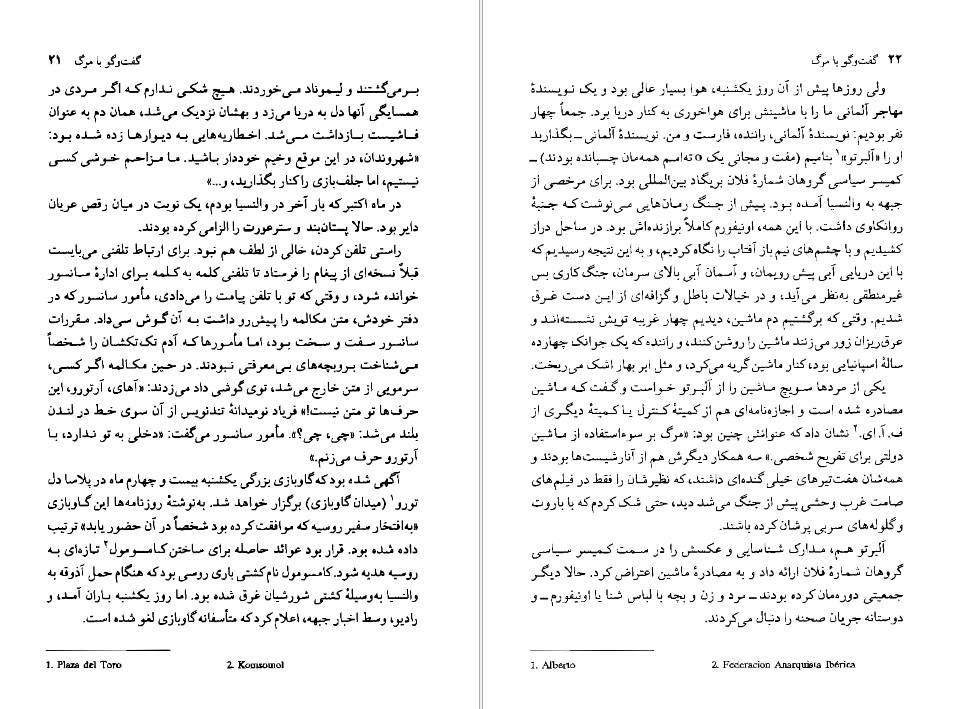 گفت‌وگو با مرگ ۲۱
برمی‌گشتند و لیموناد می‌خوردند. هیچ شکی ندارم که اگر مردی در
همسایگی آنها دل به دریا می‌زد و بهشان نزدیک می‌شد، همان دم به عنوان
فاشیست بازداشت می‌شد. اخطاریه‌هایی به دیوارها زده شده بود:
«شهروندان، در این موقع وخیم خوددار باشید. ما مزاحم خوشی کسی
نیستیم، اما جلف‌بازی را کنار بگذارید، و...»
در ماه اکتبر که بار آخر در والنسیا بودم، یک نوبت در میان رقص عریان
دایر بود. حالا پستان‌بند و سترعورت را الزامی کرده بودند.
راستی تلفن کردن، خالی از لطف هم نبود. برای ارتباط تلفنی می‌بایست
قبلاً نسخه‌ای از پیغام را فرستاد تا تلفنی کلمه به کلمه برای ادارهٔ سانسور
خوانده شود، و وقتی که تو با تلفن پیامت را می‌دادی، مأمور سانسور که در
دفتر خودش، متن مکالمه را پیش‌رو داشت به آن گوش می‌داد. مقررات
سانسور سفت و سخت بود، اما مأمورها که آدم تک‌تکشان را شخصاً
می‌شناخت بروبچه‌های بی‌معرفتی نبودند. در حین مکالمه اگر کسی،
سرمویی از متن خارج می‌شد، توی گوشی داد می‌زدند: «آهای، آرتورو، این
حرف‌ها تو متن نیست!» فریاد نومیدانهٔ تندنویس از آن سوی خط در لندن
بلند می‌شد: «چی، چی؟». مأمور سانسور می‌گفت: «دخلی به تو ندارد، با
آرتورو حرف می‌زنم.»
آگهی شده بود که گاوبازی بزرگی یکشنبه بیست و چهارم ماه در پلاسا دل
تورو۱ (میدان گاوبازی) برگزار خواهد شد. به‌نوشتهٔ روزنامه‌ها این گاوبازی
«به‌افتخار سفیر روسیه که موافقت کرده بود شخصاً در آن حضور یابد» ترتیب
داده شده بود. قرار بود عوائد حاصله برای ساختن کامسومول۲ تازه‌ای به
روسیه هدیه شود. کامسومول نام کشتی باری روسی بود که هنگام حمل آذوقه به
والنسیا به‌وسیلهٔ کشتی شورشیان غرق شده بود. اما روز یکشنبه باران آمد، و
رادیو، وسط اخبار جبهه، اعلام کرد که متأسفانه گاوبازی لغو شده است.
1. Plaza del Toro 2. Komsomol
۲۲ گفت‌وگو با مرگ
ولی روزها پیش از آن روز یکشنبه، هوا بسیار عالی بود و یک نویسندهٔ
مهاجر آلمانی ما را با ماشینش برای هواخوری به کنار دریا برد. جمعاً چهار
نفر بودیم: نویسندهٔ آلمانی، راننده، فارست و من. نویسندهٔ آلمانی ــ بگذارید
او را «آلبرتو»۱ بنامیم (مفت و مجانی یک o ته‌اسم همه‌مان چسبانده بودند) ــ
کمیسر سیاسی گروهان شمارهٔ فلان بریگاد بین‌المللی بود. برای مرخصی از
جبهه به والنسیا آمده بود. پیش از جنگ رمان‌هایی می‌نوشت که جنبهٔ
روانکاوی داشت. با این همه، اونیفورم کاملاً برازنده‌اش بود. در ساحل دراز
کشیدیم و با چشم‌های نیم باز آفتاب را نگاه کردیم، و به این نتیجه رسیدیم که
با این دریایی آبی پیش رویمان، و آسمان آبی بالای سرمان، جنگ کاری بس
غیرمنطقی به‌نظر می‌آید، و در خیالات باطل و گزافه‌ای از این دست غرق
شدیم. وقتی که برگشتیم دم ماشین، دیدیم چهار غریبه تویش نشسته‌اند و
عرق‌ریزان زور می‌زنند ماشین را روشن کنند، و راننده که یک جوانک چهارده
سالهٔ اسپانیایی بود، کنار ماشین گریه می‌کرد، و مثل ابر بهار اشک می‌ریخت.
یکی از مردها سویچ ماشین را از آلبرتو خواست و گفت که ماشین
مصادره شده است و اجازه‌نامه‌ای هم از کمیتهٔ کنترل یا کمیتهٔ دیگری از
ف. آ. ای.۲ نشان داد که عنوانش چنین بود: «مرگ بر سوءاستفاده از ماشین
دولتی برای تفریح شخصی.» سه همکار دیگرش هم از آنارشیست‌ها بودند و
همه‌شان هفت‌تیرهای خیلی گنده‌ای داشتند، که نظیرشان را فقط در فیلم‌های
صامت غرب وحشی پیش از جنگ می‌شد دید، حتی شک کردم که با باروت
و گلوله‌های سربی پرشان کرده باشند.
آلبرتو هم، مدارک شناسایی و عکسش را در سمت کمیسر سیاسی
گروهان شمارهٔ فلان ارائه داد و به مصادرهٔ ماشین اعتراض کرد. حالا دیگر
جمعیتی دوره‌مان کرده بودند ــ مرد و زن و بچه با لباس شنا یا اونیفورم ــ و
دوستانه جریان صحنه را دنبال می‌کردند.
1. Alberto 2. Federacion Anarquista Ibérica